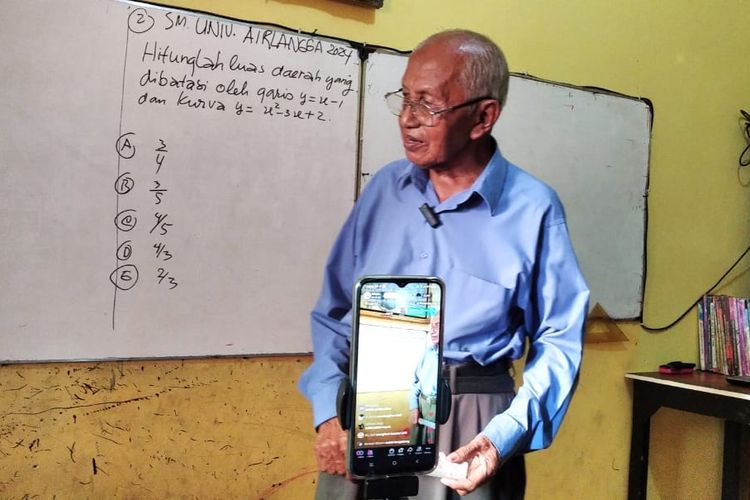 ② SM. UNIV. AIRLANGGA 2024
Hitunglah luas daerah yang
dibatasi oleh garis y = x - 1
dan kurva y = x² - 3x + 2.
Ⓐ 3/4
Ⓑ 3/5
Ⓒ 4/5
Ⓓ 4/3
Ⓔ 2/3